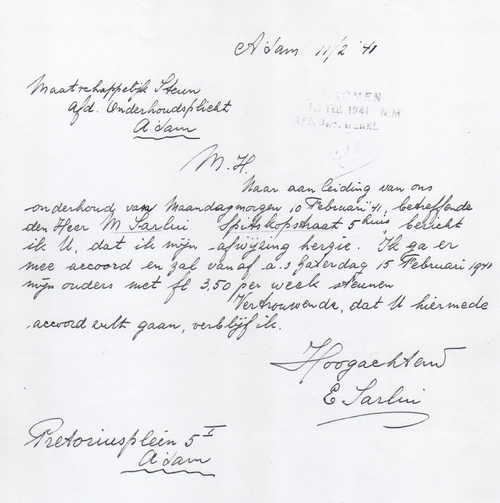 A'dam 11/2 '41
Maatschappelijk Steun
Afd. Onderhoudsplicht
A'dam
KOMEN
12 FEB. 1941 N.M
M.H.
Naar aanleiding van ons
onderhoud van Maandagmorgen 10 Februarij 41, betreffende
den Heer M Sarlui Spitskopstraat 5 huis, bericht
ik U, dat ik mijn afwijzing herzie. Ik ga er
mee accoord en zal vanaf a.s Zaterdag 15 Februari 1941
mijn ouders met fl 3,50 per week steunen
Vertrouwende, dat U hiermede
accoord zult gaan, verblijf ik.
Hoogachtend
E Sarlui
Pretoriusplein 5 I
A'dam